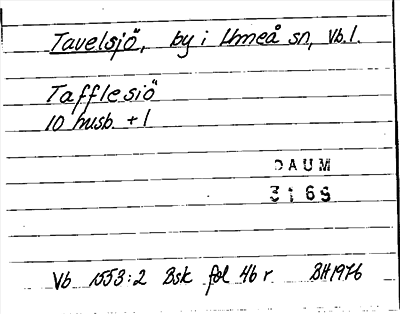 Tavelsjö, by i Umeå sn, Vb.l.
Tafflesiö
10 husb. + 1
DAUM
3169
Vb 1553:2 Bsk fol 46 r BH 1976